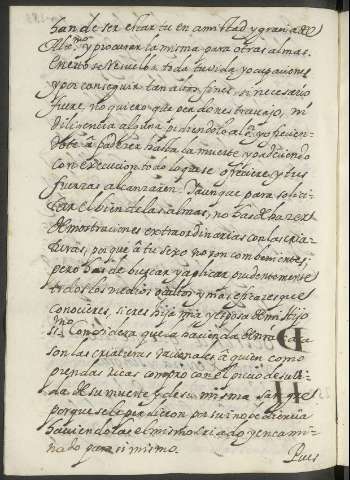 han de ser estar tu en amistad y gracia de el
Altº.ᵐᵒ y procurar la misma para otras almas.
En esto se resuelba toda tu vida y ocupaciones
y por conseguir tan altos fines, si necesario
fuere, no quiero que perdones trabajo, ni
diligencia alguna pidiendolo al Sʳ. y ofrecien-
dote à padezer hasta la muerte y padeciendo
con execucion todo lo q̃ se ofreciere y tus
fuerzas alcanzaren. Y aunque para solici-
tar el bien de las almas, no has de hazer
demostraciones extraordinarias con las cria-
turas, porque à tu sexo no son combenientes;
pero has de buscar y aplicar prudentemente
todos los medios ocultos y mas eficaces que
conocieres, si eres hija mia y esposa de mi Hijo
SSᵐᵒ. Considera que la hacienda de nrâ casa
son las criaturas racionales à quien como
prendas ricas compro con el precio de su vi-
da de su muerte y de su misma sangre
porque se le perdieron por su inobediencia
haviendolas el mismo criado y encami-
nado para si mismo.
Pues